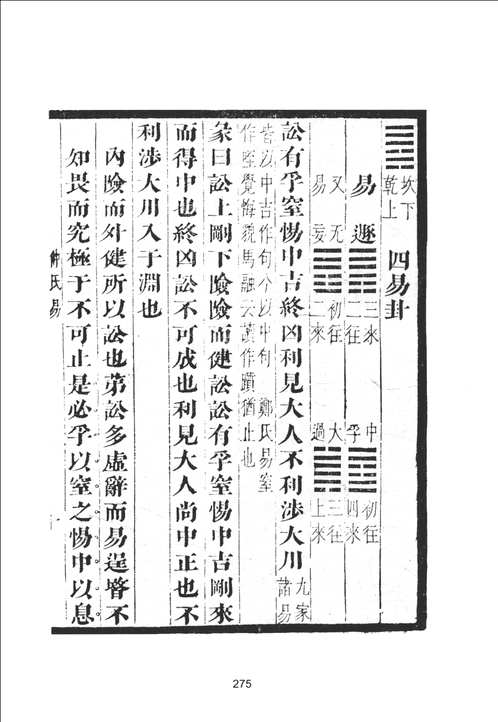 坎下乾上 四易卦
易 遯 三來二往 中孚 初往四來
又易 无妄 初往二來 大過 三往上來
訟有孚窒惕中吉終凶利見大人不利涉大川 九家諸易
皆以中吉作句不以中句 鄭氏易窒
作咥覺悔貌馬融云讀作躓猶止也
彖曰訟上剛下險險而健訟訟有孚窒惕中吉剛來
而得中也終凶訟不可成也利見大人尚中正也不
利涉大川入于淵也
內險而外健所以訟也第訟多虛辭而易逞嘗不
知畏而究極于不可止是必孚以窒之惕中以息
仲氏易
275